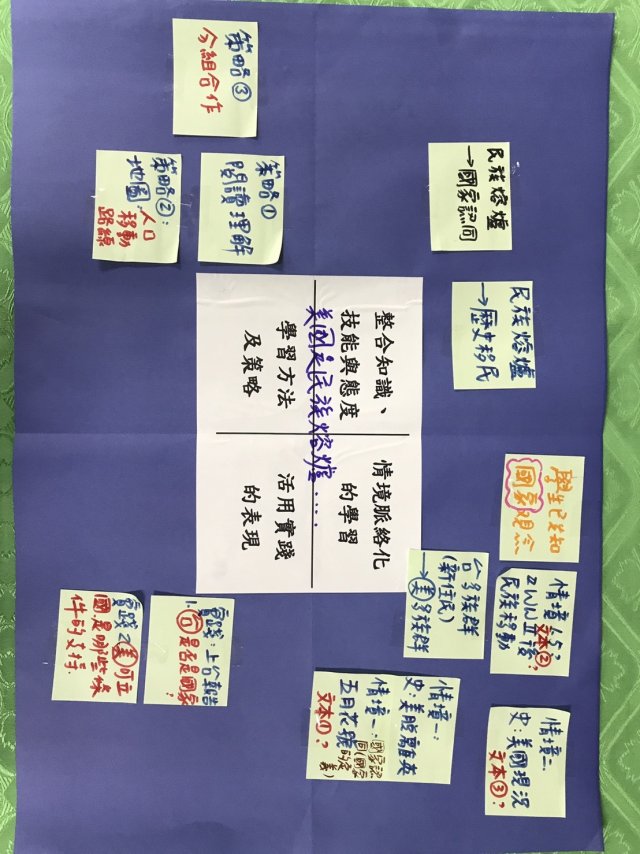 民族熔爐
→國家認同
民族熔爐
→歷史移民
學生已知
國家觀念
台多族群
(新住民)
→美多族群
民族移動
文本②?
史:美國現況
文本③?
情境一:
史:美脫離英
五月花號
文本①?
整合知識、
技能與態度
情境脈絡化
的學習
美國是民族熔爐....
學習方法
及策略
活用實踐
的表現
策略①
閱讀理解
策略②:
地圖:人口
移動
路線
策略③
分組合作
實踐:上台報告
1.台是否是國家?
實踐2美可立
國是哪些條
件的支持.